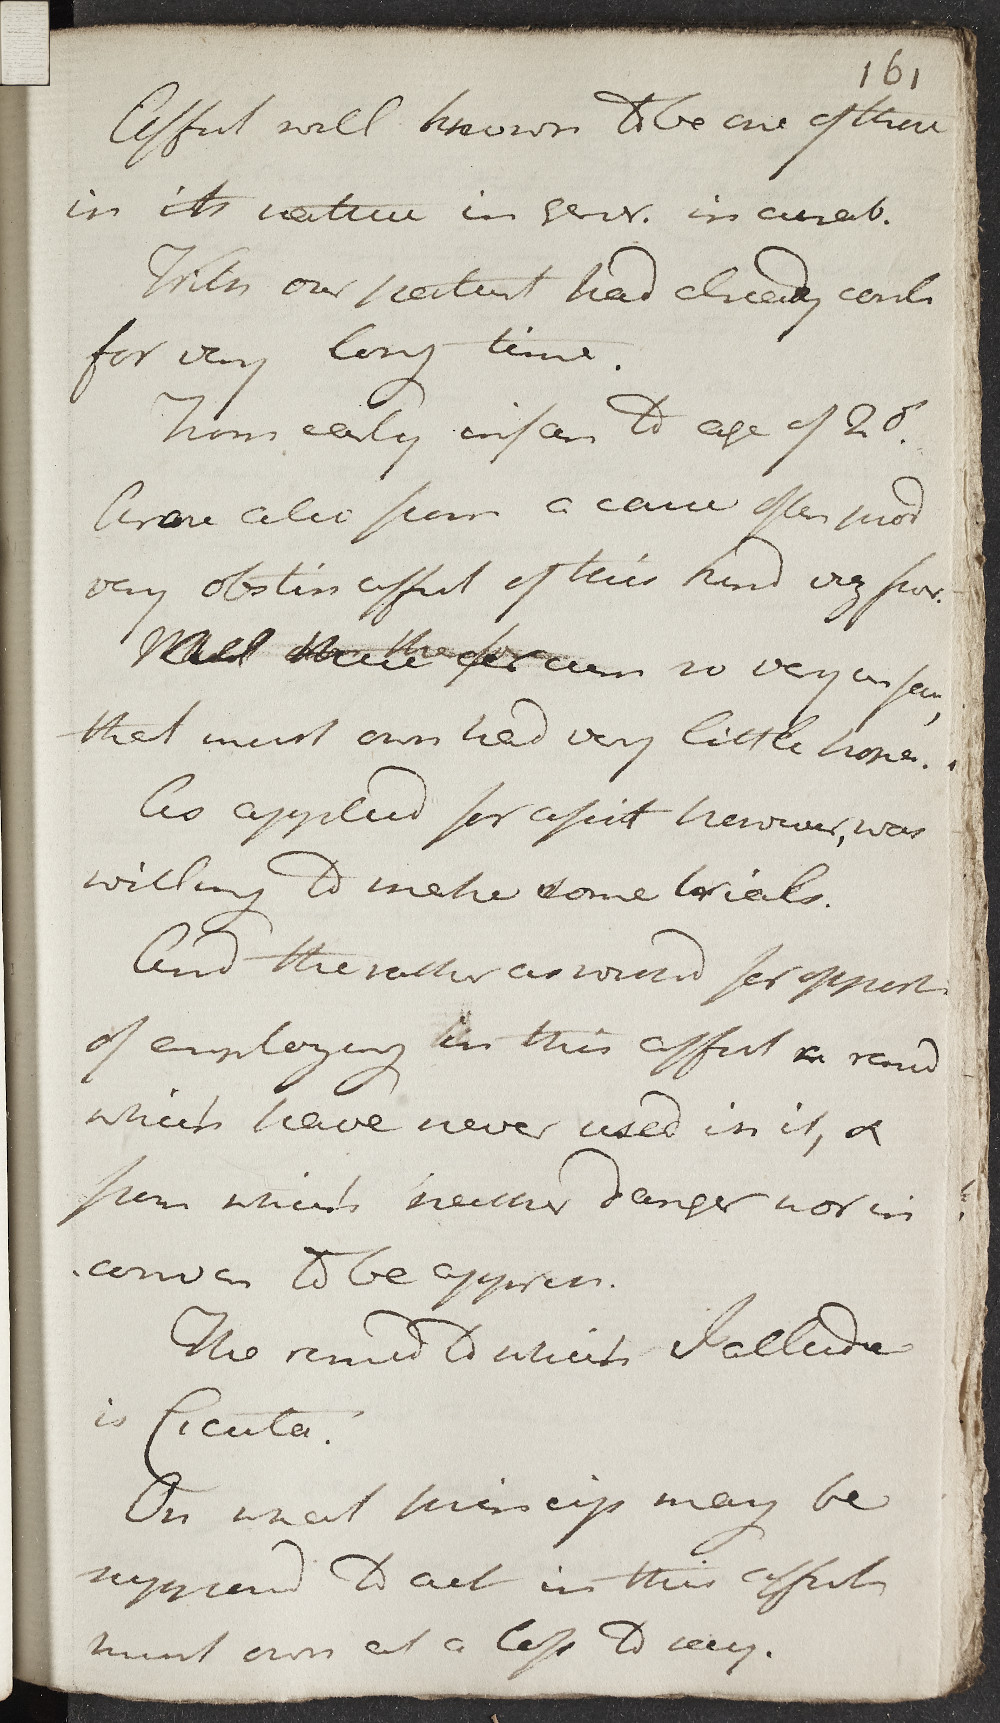 161
Affect well known to be one of those
in its nature in gener. incurab.
With our patient had already cont
for very long time.
From early infan to age of 28.
Arose also from a cause often prod
very obstin affect of this kind viz
so very
that must own had very little hopes.
As applied for assist however, was
willing to make some trials.
And the rather as would for opport
of employing in this affect a remd
which have never used in it, &
from which neither danger nor in
conven to be appreh.
The remed to which I allude
is Cicuta.
On what princip may be
supposed to act in this affect
must own at a loss to say.